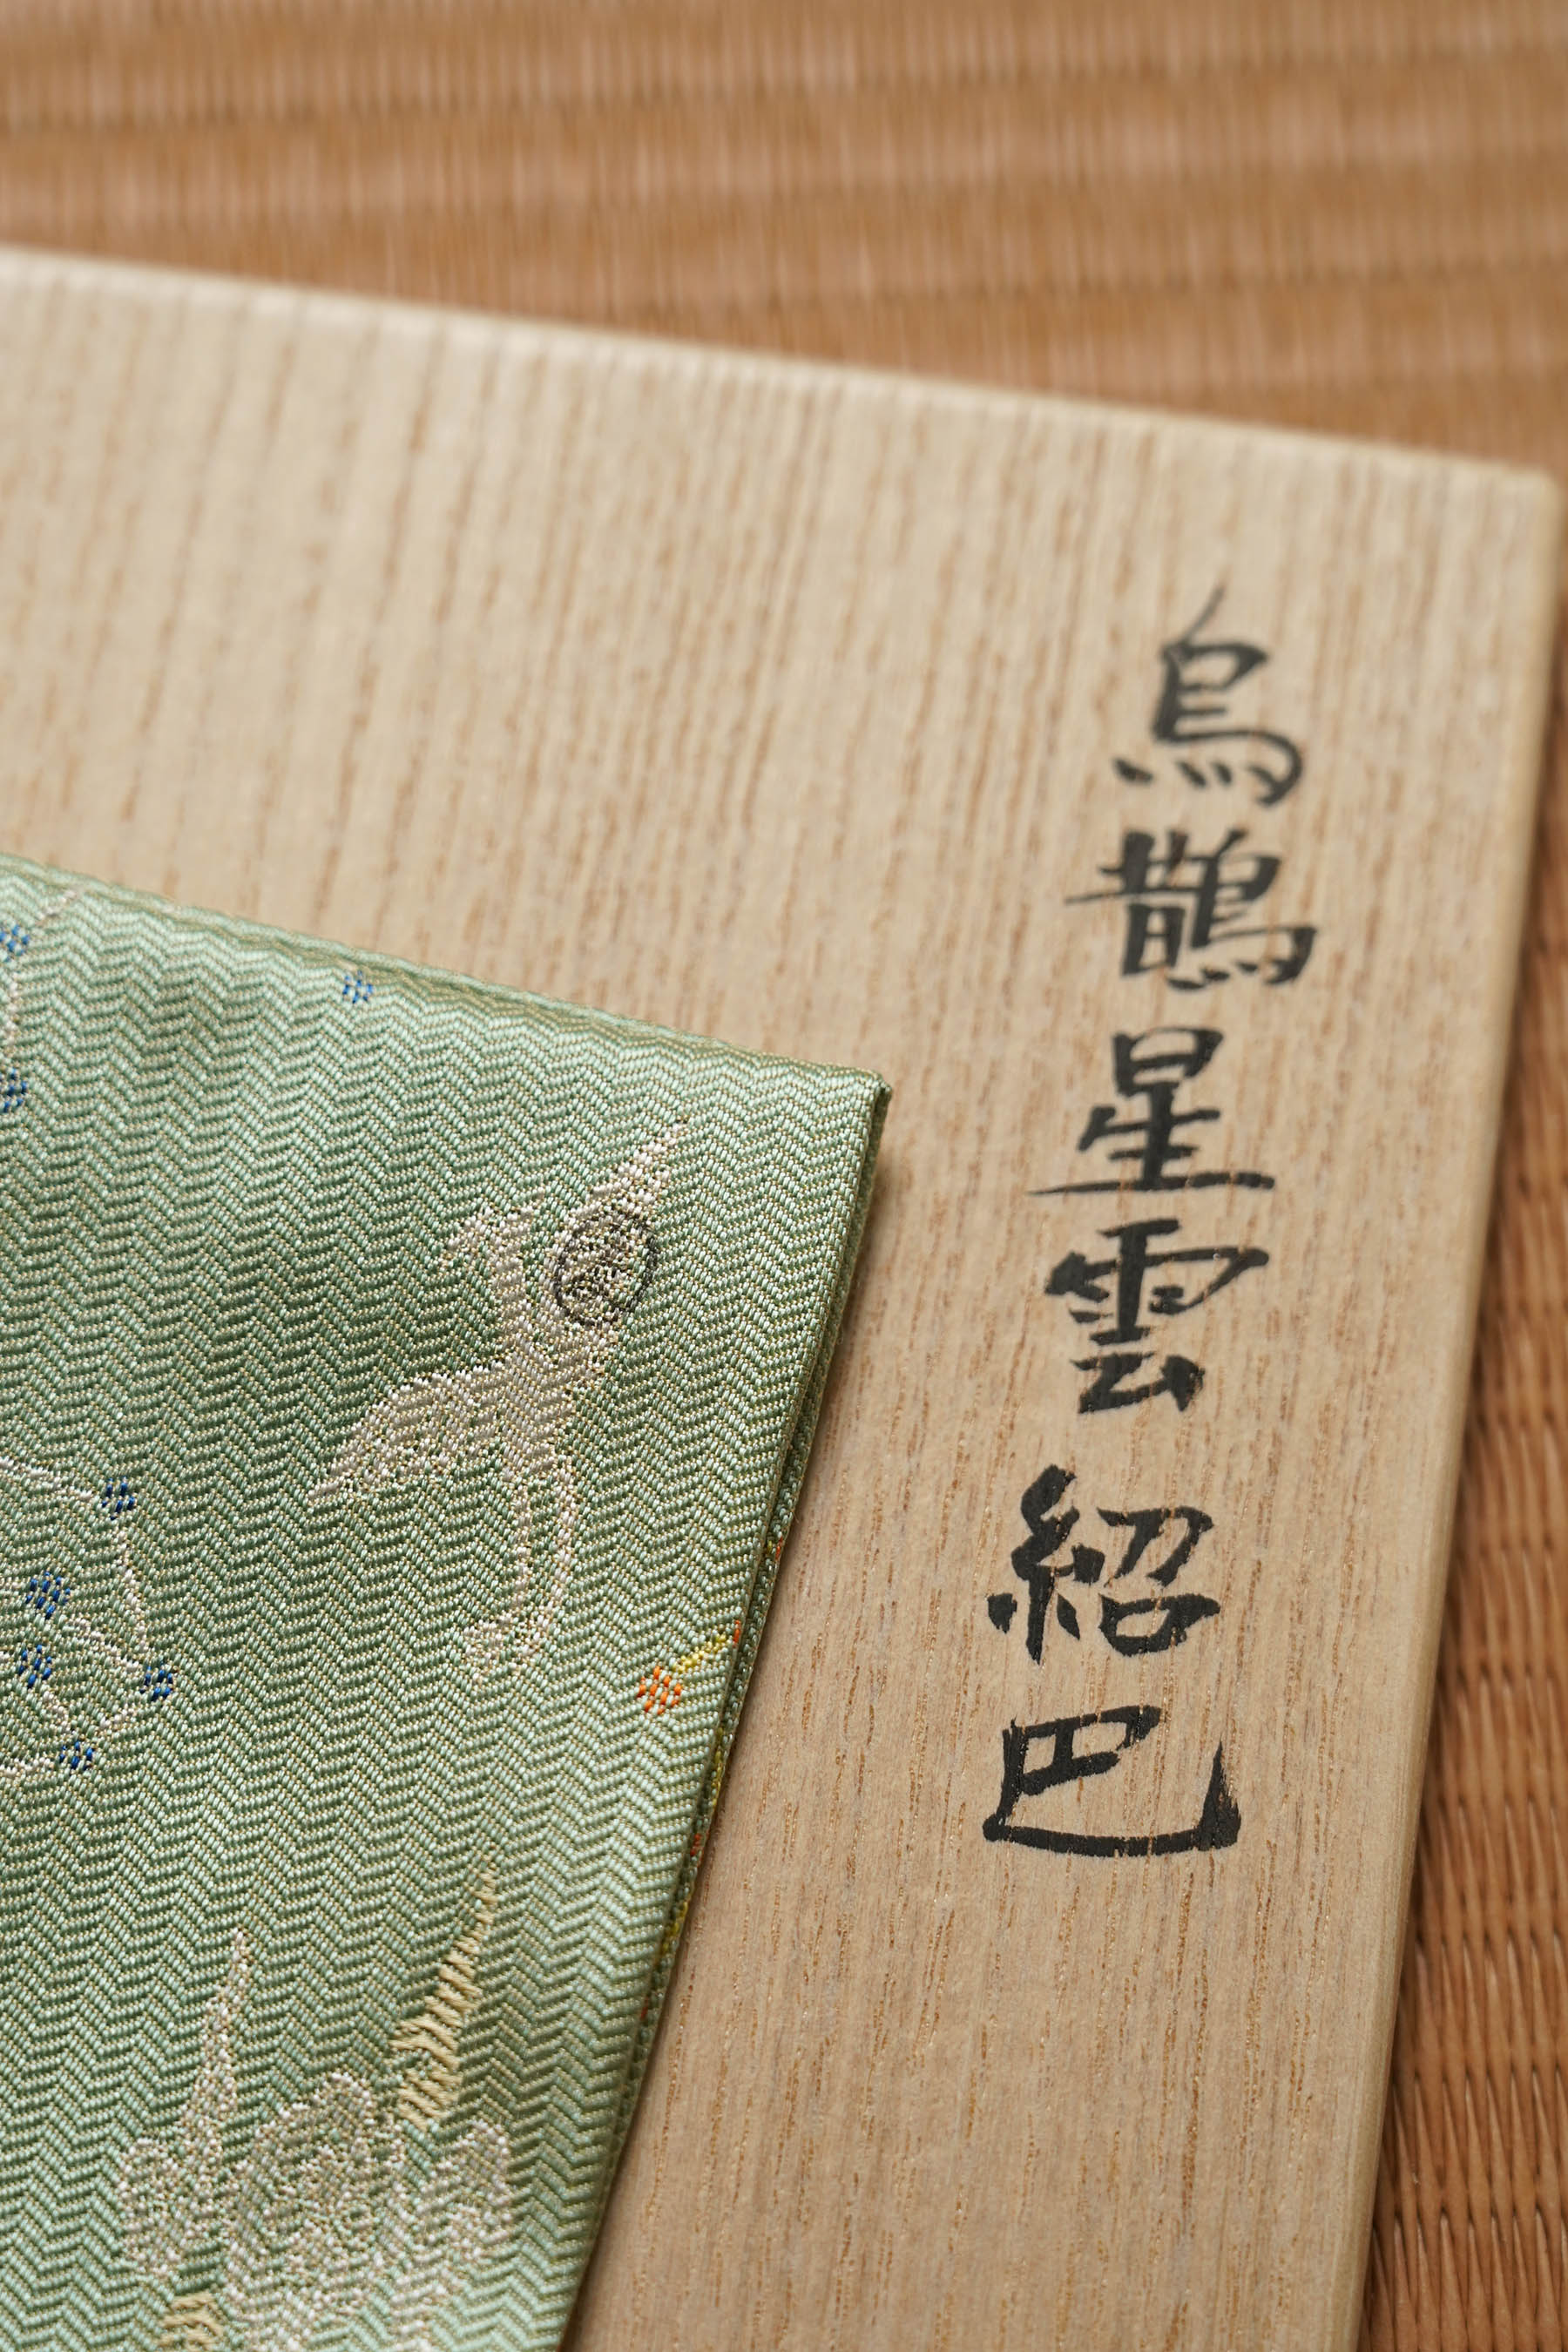 烏鵲星雲 紹巴